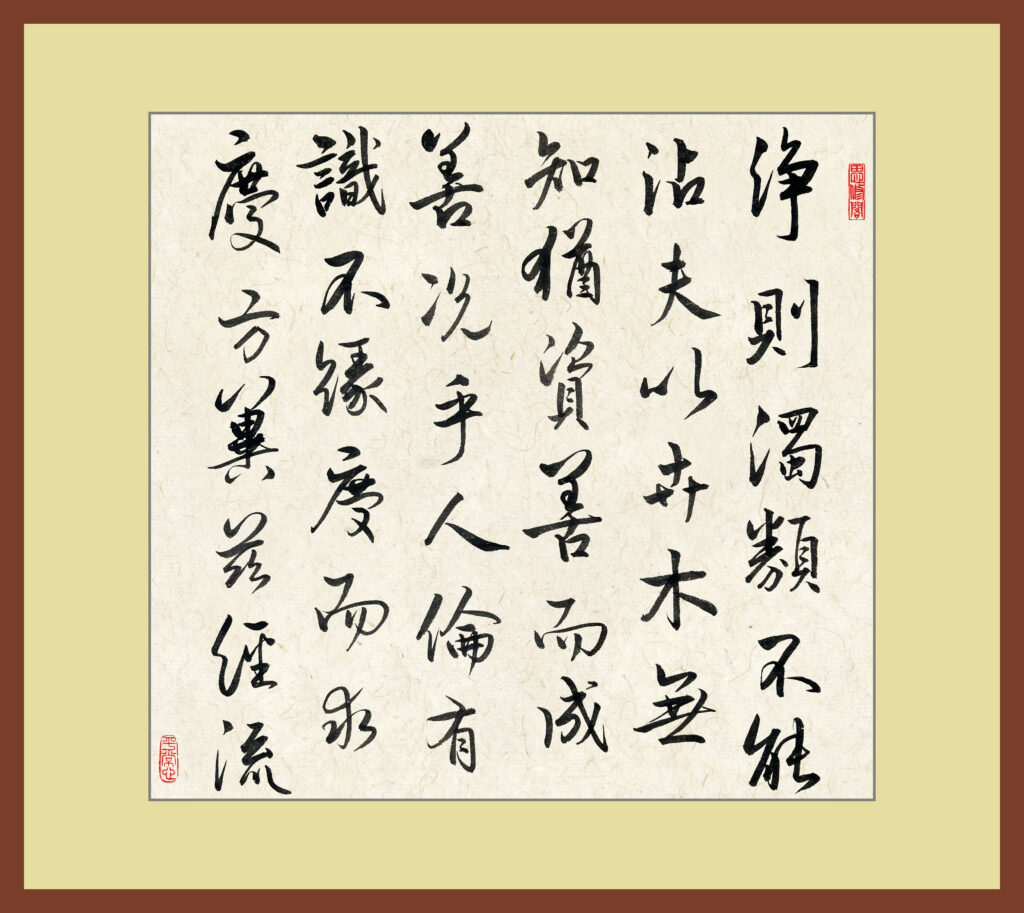 思修閣
浄則濁類不能
沾夫以卉木無
知猶資善而成
善况乎人倫有
識不緣慶而求
慶方冀茲經流
平常心